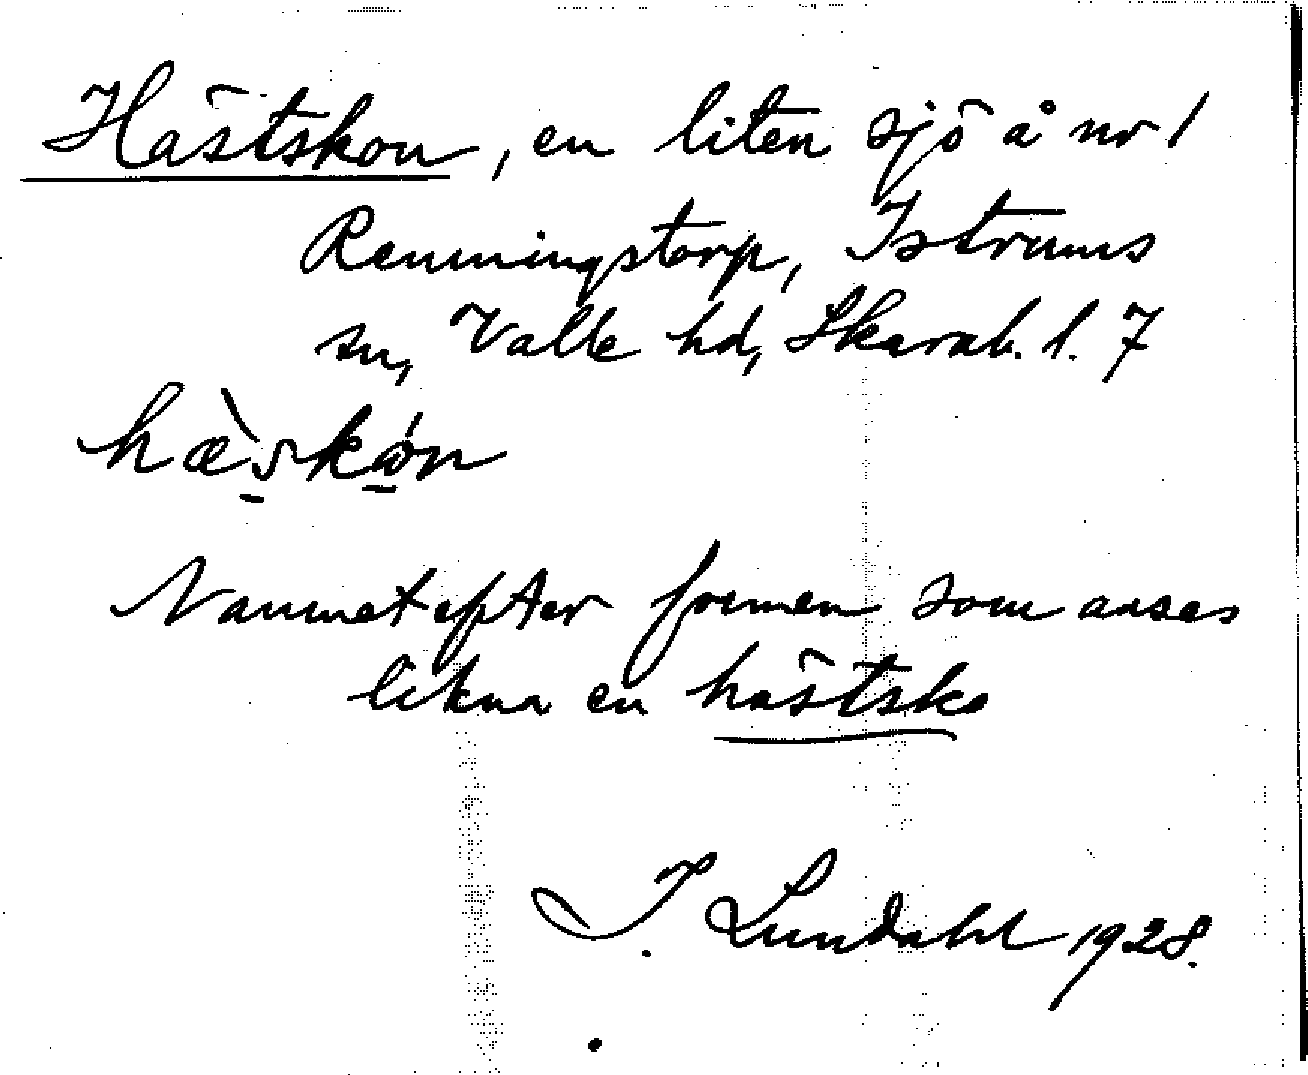 Hästskon, en liten sjö å nr 1
Remmingstorp, Istrums
sn, Valle hd, Skarab. l. 7
hæ̀skón
Namnet efter formen som anses
likna en hästsko
I. Lundahl 1928.